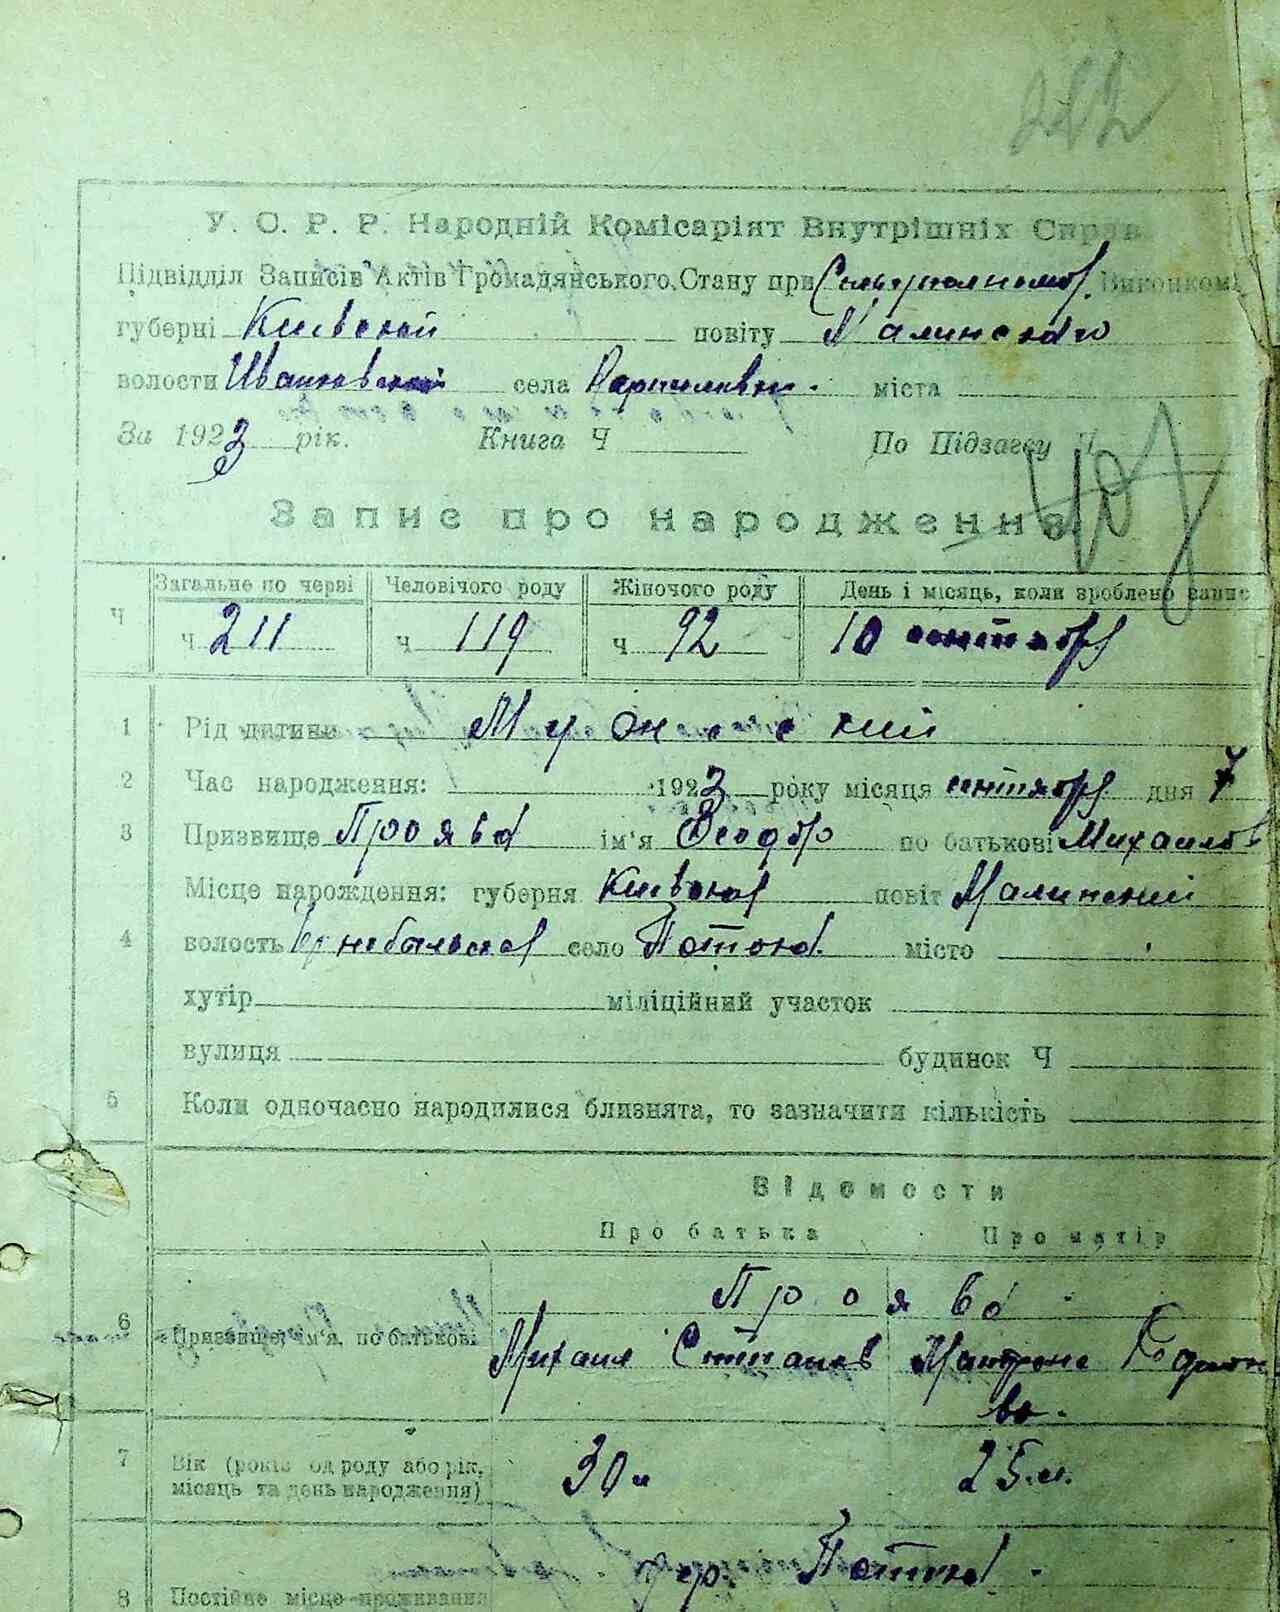 282
У. С. Р. Р. Народній Комісаріят Внутрішніх Справ
Підвідділ Записів Актів Громадянського Стану при Викопкомі
губерні Киевской повіту Малинского
волости Иванковской села міста
За 1923 рік. Книга Ч По Підзагсу Ч
Запис про народження
Ч Загальне по черві Человічого роду Жіночого роду День і місяць, коли зроблено запис
ч 211 ч 119 ч 92 10 сентября
1 Рід дитини Мужеский
2 Час народження: 1923 року місяця сентября дня 7
3 Призвище Проява ім'я Феодор по батькові Михаилов
Місце нарождення: губерня Киевская повіт Малинский
4 волость село Потоки місто
хутір міліційний участок
вулиця будинок Ч
5 Коли одночасно народилися близнята, то зазначити кількість
Відомости
Про батька Про матір
Проява
6 Призвище, ім'я, по батькові Михаил Степанов Матрона
ва.
7 Вік (років од роду або рік, 30 л 25 л.
місяць та день народження)
Потоки
8 Постійне місце проживання